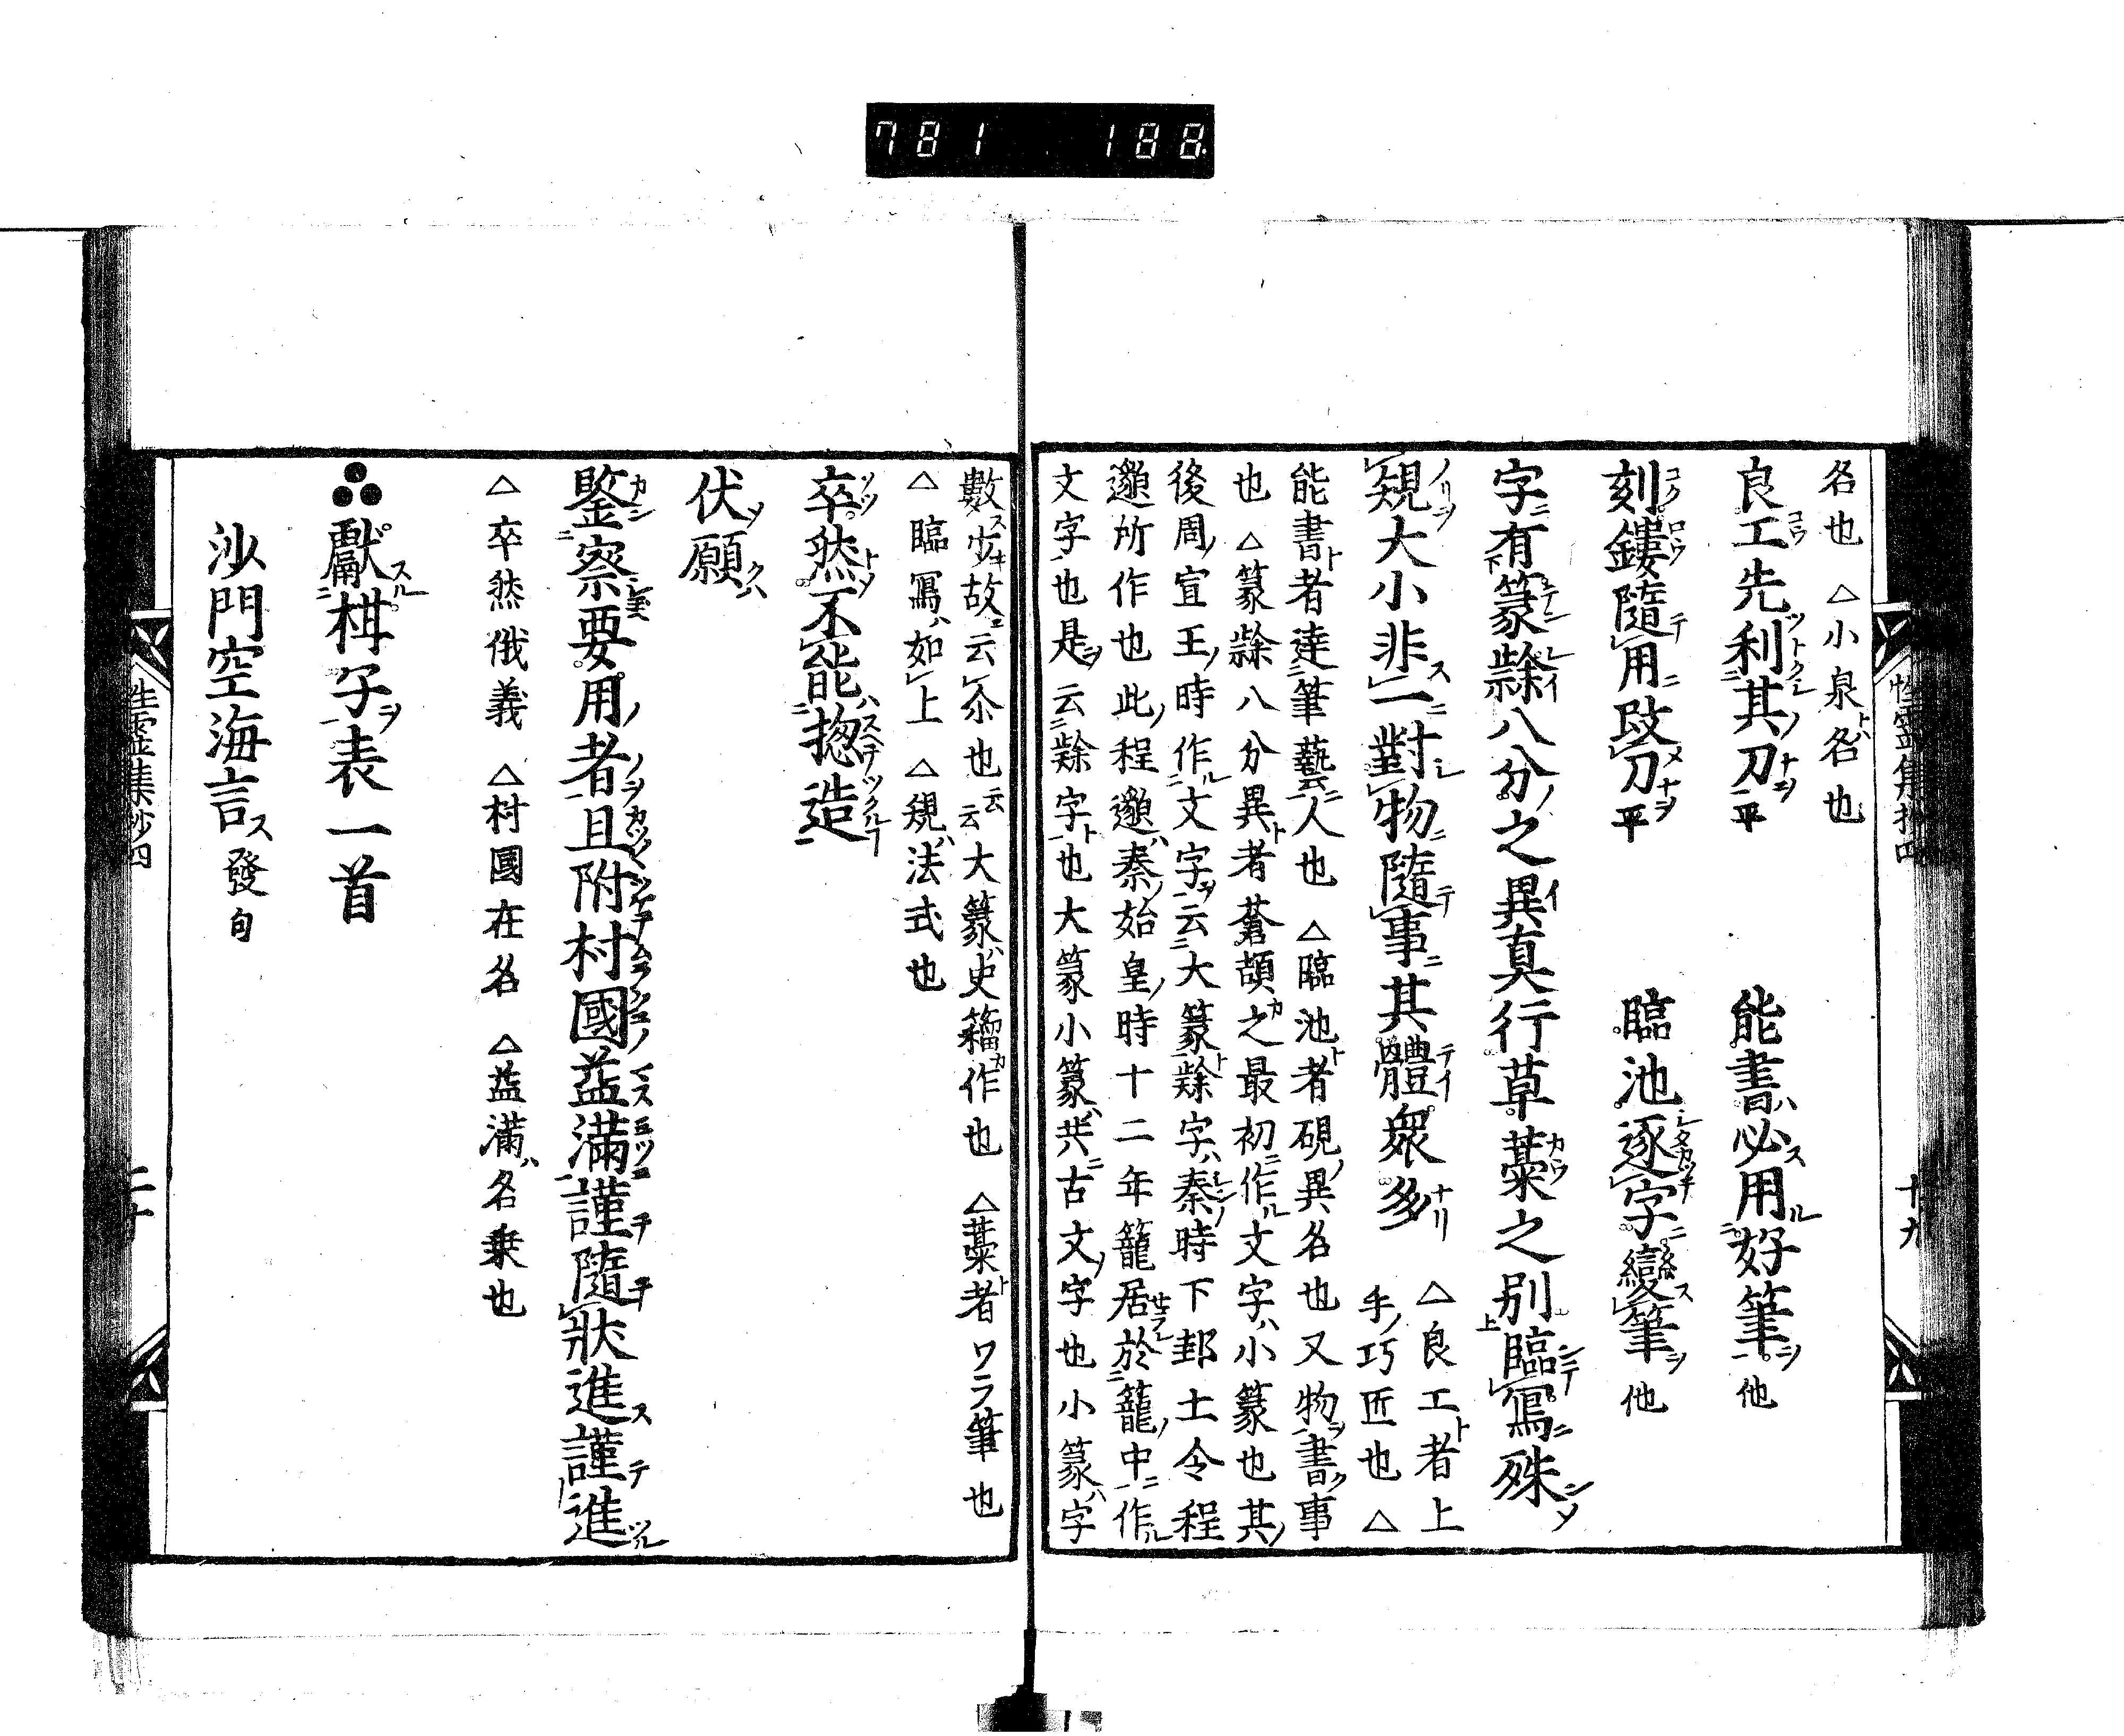 781 188
名也 △小泉トハ名也
良工先利其刀 平 能書必用好筆 他
刻鏤隨用改刀 平 臨池逐字變筆 他
字有篆隷八分之異真行草藁之別臨寫殊
規大小非一對物隨事其體衆多 △良工ト者上
手ノ巧匠也 △
能書ト者達筆藝人也 △臨池ト者硯ノ異名也又物ヲ書ク事
也 △篆隷八分異ト者蒼頡之最初作ル文字ハ小篆也其ノ
後周ノ宣王ノ時作ル文字ヲ云大篆ト隷字ハ秦ノ時下邽土令程
邈所作也此ノ程邈ハ秦ノ始皇ノ時十二年籠居於籠中ニ作ル
文字也是ヲ云隷字ト也大篆小篆ハ共ニ古文ノ字也小篆ハ字
數少キ故云尒也云云大篆ハ史籀作也 △藁ト者ワラ筆也
△臨寫ハ如上 △規ハ法式也
卒然不能揔造
伏願
鑒察要用者且附村國益滿謹隨狀進謹進
△卒然俄義 △村國在名 △益滿ハ名乗也
獻柑子表一首
沙門空海言ス 發句
性靈集抄四
十九
性靈集抄四
二十